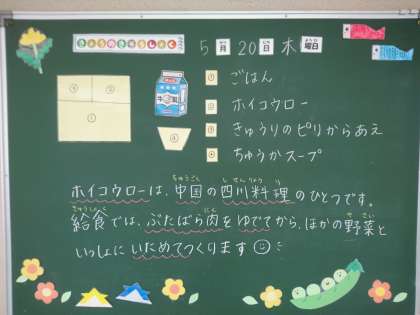 きょうのきゅうしょく
5月20日木曜日
① ごはん
② ホイコウロー
③ きゅうりのピリからあえ
④ ちゅうかスープ
ホイコウローは、中国の四川料理のひとつです。
給食では、ぶたばら肉をゆでてから、ほかの野菜と
いっしょにいためてつくります